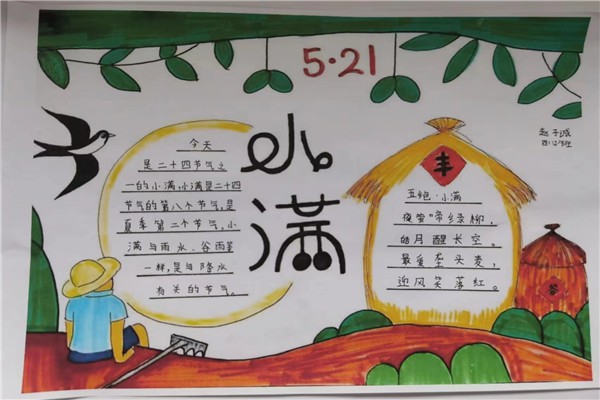 5·21
小
满
今天
是二十四节气之
一的小满,小满是二十四
节气的第八个节气,是
夏季第二个节气,小
满与雨水、谷雨等
一样,是与降水
有关的节气。
丰
五绝·小满
夜莺啼绿柳,
皓月醒长空。
最爱垄头麦,
迎风笑落红。
谷